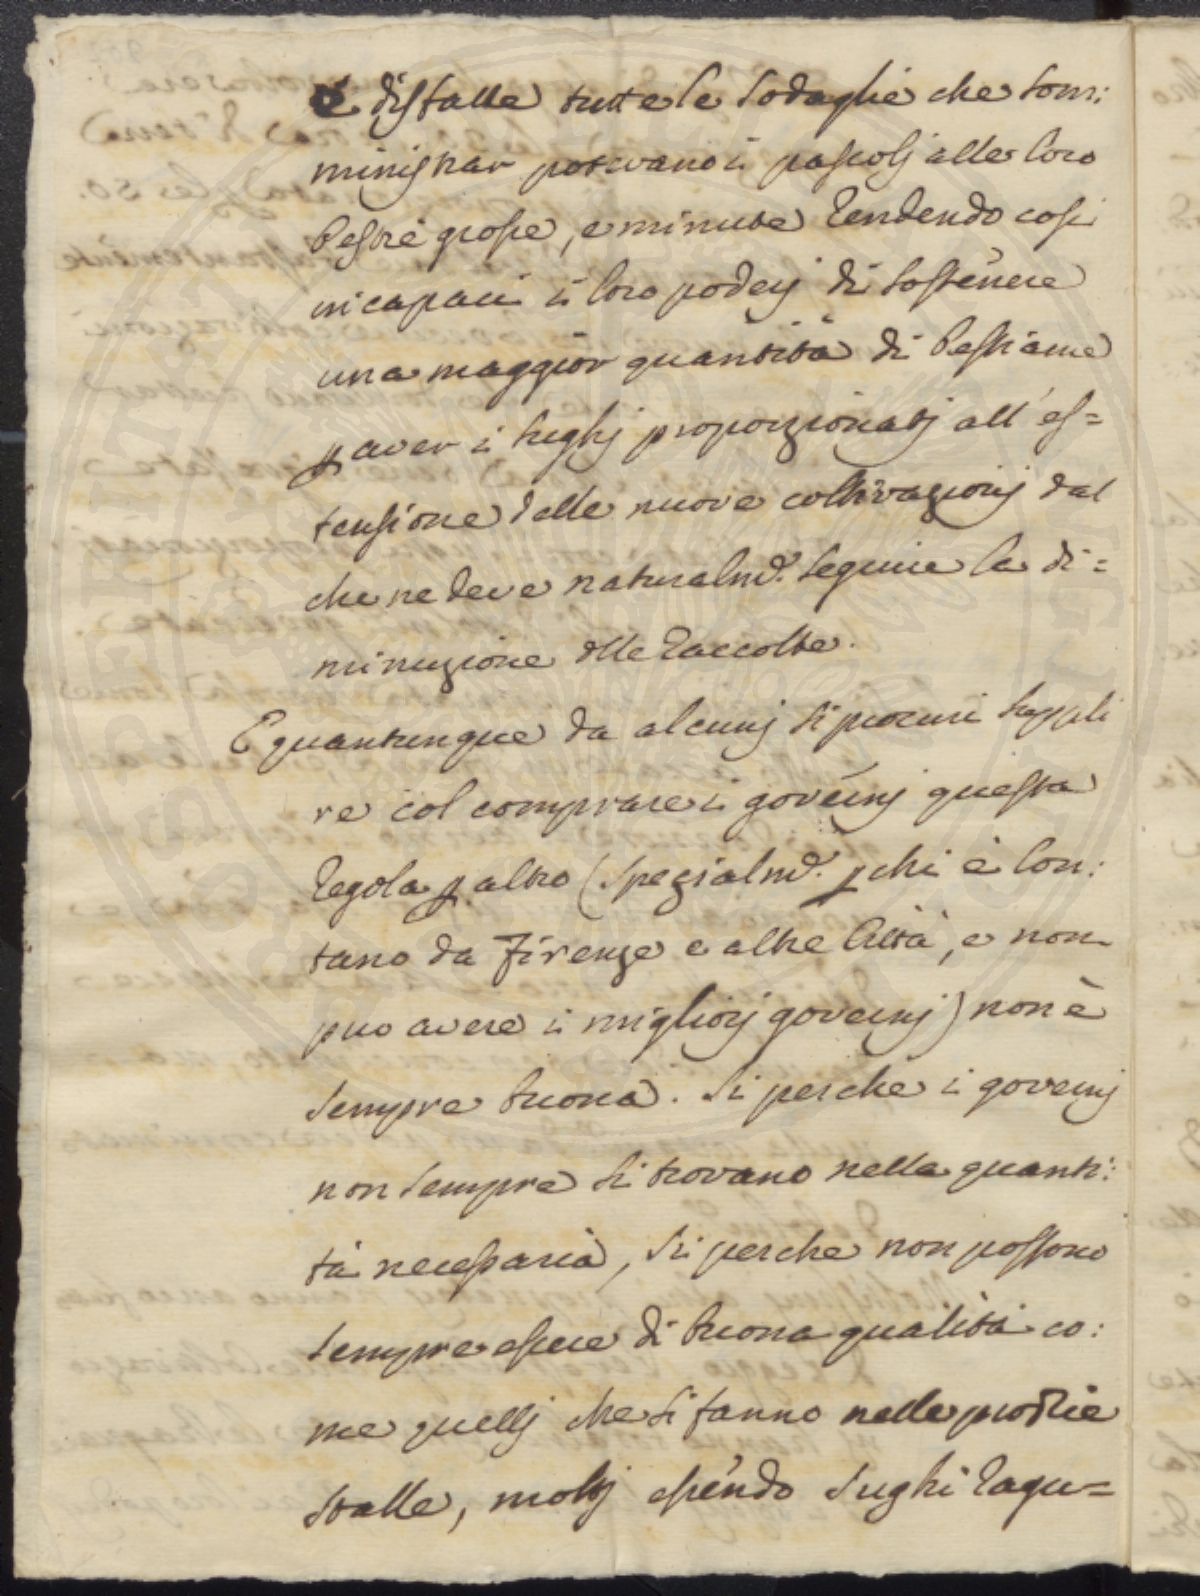 e disfatte tutte le sodaglie che som:
ministrar potevano i pascolj alle loro
bestie grosse, e minute rendendo così
incapaci i loro poderj di sostenere
una maggior quantità di bestiame
p aver i sughj proporzionatj all'es=
tensione delle nuove coltivazionj dal
che ne deve naturalm.e seguire la di=
minuzione dlle raccolte.
E quantunque da alcunj si procuri suppli
re col comprare i governj questa
regola p altro (spezialm.e p chi è lon:
tano da Firenze e altre Città, e non
puo avere i migliorj governj) non è
sempre buona. Si perche i governj
non sempre si trovano nella quanti:
tà necessaria, si perche non possono
sempre essere di buona qualità co:
me quellj che si fanno nelle proprie
stalle, moltj essendo sughi ragu=